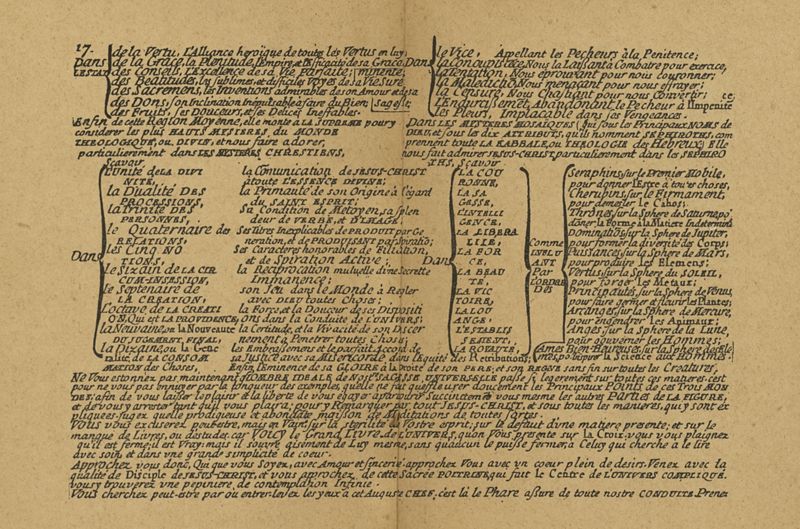 17.
de la Vertu, l'Alliance heroique de toutes les Vertus en luy;
Dans de la Grace, la Plenitude, l'Empire, et l'Efficacité de sa Grace,
L'ESTAT des Conseils, l'Excellence de sa Vie Parfaite;
des Beatitudes, les sublimes, et difficiles Voyes de sa Vie Sure
des Sacremens, les Inventions admirables de son Amour
des DONS; son Inclination Inepuisable a faire du Bien;
des Fruits, ses Douceurs, et ses Delices Ineffables.
Enfin de cette Region Moyenne, elle monte A LA SUPREME pour y
considerer les plus HAUTS MYSTERES du MONDE
THEOLOGIQUE, ou DIVIN, et nous faire adorer,
particulierement dans LES MYSTERES CHRESTIENS,
Sçavoir
le Vice, Appellant les Pecheurs à la Penitence;
Dans la CONCUPISCENCE, Nous la Laissant a Combatre pour exercice,
la Tentation, Nous eprouvant pour nous couronner;
la Malediction, Nous menaçant pour nous effrayer;
la Censure, Nous Chatiant pour nous Convertir;
L'Endurcissement, Abandonant le Pecheur à l'Impenitence
les Pleurs, Implacable dans ses Vengeances.
Dans LES MYSTERES MOSAIQUES, (qui sous les Principaux NOMS de
DIEU, et sous les dix ATTRIBUTS, qu'ils nomment SEPHIROTHS, com
prennent toute LA KABBALE, ou THEOLOGIE des Hebreux; Elle
nous fait admirer JESUS-CHRIST, particulierement dans les SEPHIRO
THS, Sçavoir
Dans
l'Unité de LA DIVI
NITÉ,
la Dualité DES
PROCESSIONS,
la Trinité DES
PERSONNES,
le Quaternaire des
RELATIONS,
les Cinq NO
TIONS,
le Sixain de LA CIR
CUM-INSESSION,
le Septenaire de
LA CREATION,
l'Octave de LA CREATI
ON, Qui est LA PROVIDENCE,
la Neuvaine, ou la Nouveauté
DU JUGEMENT FINAL,
la Dixaine, ou la Gene
ralité, de LA CONSOM
MATION des Choses,
la Comunication de JESUS-CHRIST
a toute L'ESSENCE DIVINE;
la Primauté de son Origine à l'égard
du SAINT ESPRIT;
Sa Condition de Metoyen, sa splen
deur de VERBE, et D'IMAGE;
Ses Titres Inexplicables de PRODUIT par Ge
neration, et de PRODUISANT par Spiration;
Ses Caracteres honorables de Filiation,
et de Spiration Active;
la Reciprocation mutuelle d'une Secrette
Immanence;
son Jeu dans le Monde à Regler
avec DIEU toutes Choses;
la Force, et la Douceur de ses Dispositi
ons dans la Conduite de L'UNIVERS;
la Certitude, et la Vivacité de son Discer
nement, à Penetrer toutes Choses;
les Embrassemens, et le parfait Accord de
sa Justice avec sa Misericorde dans l'Equité des Retributions;
Enfin, l'Eminence de sa GLOIRE à la Droite de son PERE, et son REGNE sans fin sur toutes les Creatures,
Dans
LA COU
RONNE,
LA SA
GESSE,
L'INTELLI
GENCE,
LA LIBERA
LITÉ,
LA FOR
CE,
LA BEAU
TÉ,
LA VIC
TOIRE,
LA LOU
ANGE,
L'ESTABLIS
SEMENT,
LA ROYAUTÉ,
Comme
Par
L'ORDRE
DES
Seraphins, sur le Premier Mobile,
pour donner l'Estre à toutes choses,
Cherubins, sur le FIRMAMENT,
pour demesler le Cahos;
Thrônes, sur la Sphere de Saturne, po
doner la Forme à la Matiere Indeterminée
Dominations, sur la Sphere de Jupiter,
pour former la diversité des Corps;
Puissances, sur la Sphere de Mars,
pour produire les Elemens;
Vertus, sur la Sphere du SOLEIL,
pour forger les Metaux;
Principautés, sur la Sphere de Venus,
pour faire germer et fleurir les Plantes;
Arcanges, sur la Sphere de Mercure,
pour Engendrer les Animaux;
Anges, sur la Sphere de la Lune,
pour gouverner les Hommes;
Ames Bien-Heureuses,
la Science aux HOMMES.
Ne Vous étonnez pas maintenant, d'OMBRE IDEALE de Nostre SAGESSE UNIVERSELLE passe si legerement sur toutes ces matieres: c'est
pour ne vous pas ennuyer par la longueur des exemples, qu'elle ne fait qu'effleurer doucement les Principaux Points de ces Trois MON
DES; afin de vous laisser le plaisir et la liberté de vous egayer a parcourir Succinctement vous mesme les autres Parties de LA FIGURE,
et de vous y arrester tant qu'il vous plaira; pour y Remarquer par tout JESUS-CHRIST, et sous toutes les manieres, qui y sont ex
pliquées: sujet quelle prodigieuse et abondante moisson de Meditations de toutes sortes.
Vous vous excuserez peut estre, mais en Vain, sur la sterilité de Vostre esprit; sur le defaut d'une matiere presente; et sur le
manque de Livres, ou d'estude: car VOICY le Grand LIVRE de L'UNIVERS, qu'on Vous presente sur la Croix: vous vous plaignez
qu'il est fermé, il est Vray; mais il s'ouvre aisement de Luy mesme, sans qu'aucun le puisse fermer, à Celuy qui cherche à le lire
avec soin, et dans une grande simplicité de coeur.
Approchez vous donc, Qui que vous Soyez, avec Amour, et sincerité: approchez Vous avec un coeur plein de desirs. Venez avec la
qualité de Disciple de JESUS-CHRIST, et vous approchez de cette Sacrée POITRINE, qui fait le Centre de L'UNIVERS COMPLIQUÉ.
vous y trouverez une pepiniere de contemplation Infinie.
Vous cherchez peut-estre par où entrer: levez les yeux à cet Auguste CHEF, c'est là le Phare assuré de toute nostre CONDUITE. Prenez